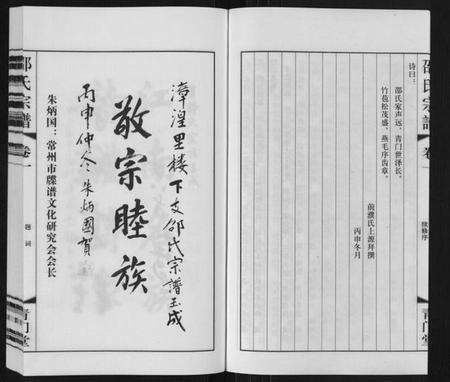 邵氏宗谱
卷一
续修序
青门堂
诗曰：
邵氏家声远，青门世泽长。
竹苞松茂盛，燕毛序齿章。
前濮氏上源拜撰
丙申冬月
漳湟里楼下支邵氏宗谱玉成
敬宗睦族
丙申仲冬朱炳國賀
朱炳国：常州市牒谱文化研究会会长
邵氏宗谱
卷一
题词
青门堂